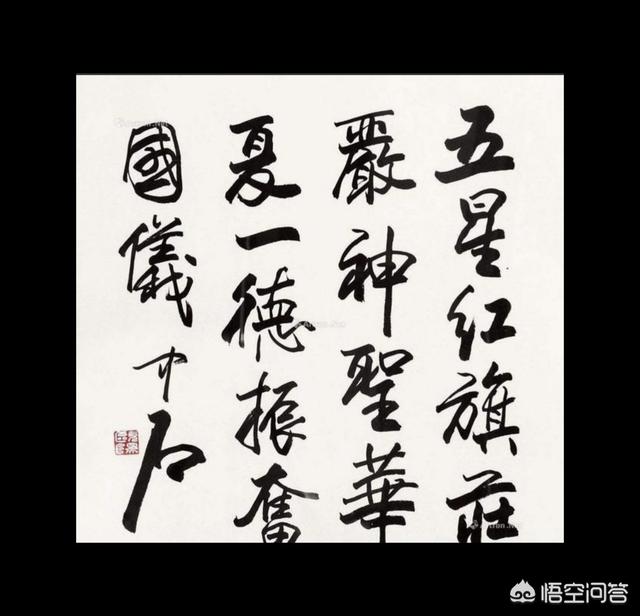 五星红旗莊
嚴神聖華
夏一德振奮
國儀 中石
悟空问答